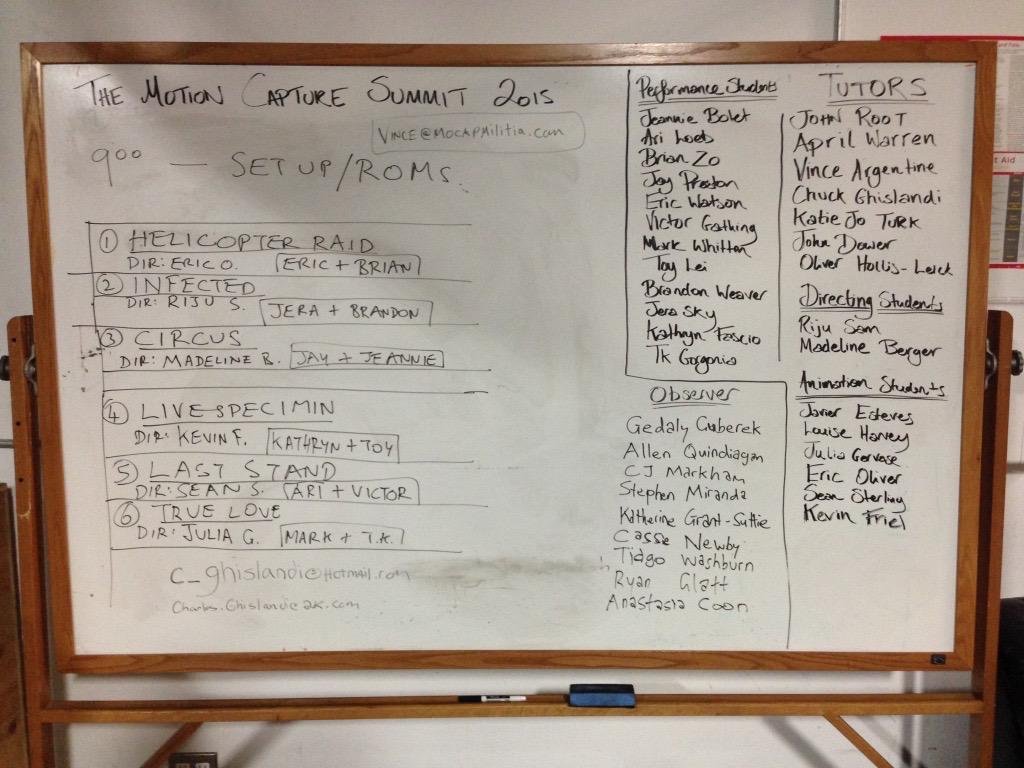 THE MOTION CAPTURE SUMMIT 2015
VINCE@MOCAPMILITIA.com
9:00 — SET UP/ROMS
① HELICOPTER RAID
DIR: ERIC O. ERIC + BRIAN
② INFECTED
DIR: RIJU S. JERA + BRANDON
③ CIRCUS
DIR: MADELINE B. JAY + JEANNIE
④ LIVE SPECIMIN
DIR: KEVIN F. KATHRYN + TOY
⑤ LAST STAND
DIR: SEAN S. ARI + VICTOR
⑥ TRUE LOVE
DIR: JULIA G. MARK + T.K.
c_ghislandi@HOTMAIL.com
Performance Students
Jeannie Bolet
Ari Loeb
Brian Zo
Jay Preston
Eric Watson
Victor Gathing
Mark Whitten
Toy Lei
Brandon Weaver
Jera Sky
Kathryn Fascio
Tk Gorgonia
Observer
Gedaly Guberek
Allen Quindiagan
CJ Markham
Stephen Miranda
Katherine Grant-Suttie
Casse Newby
Tiago Washburn
Ryan Glatt
Anastasia Coon
TUTORS
JOHN ROOT
April Warren
Vince Argentine
Chuck Ghislandi
Katie Jo Turk
John Dower
Oliver Hollis-Leick
Directing Students
Riju Sam
Madeline Berger
Animation Students
Javier Esteves
Louise Harvey
Julia Gervase
Eric Oliver
Sean Sterling
Kevin Friel